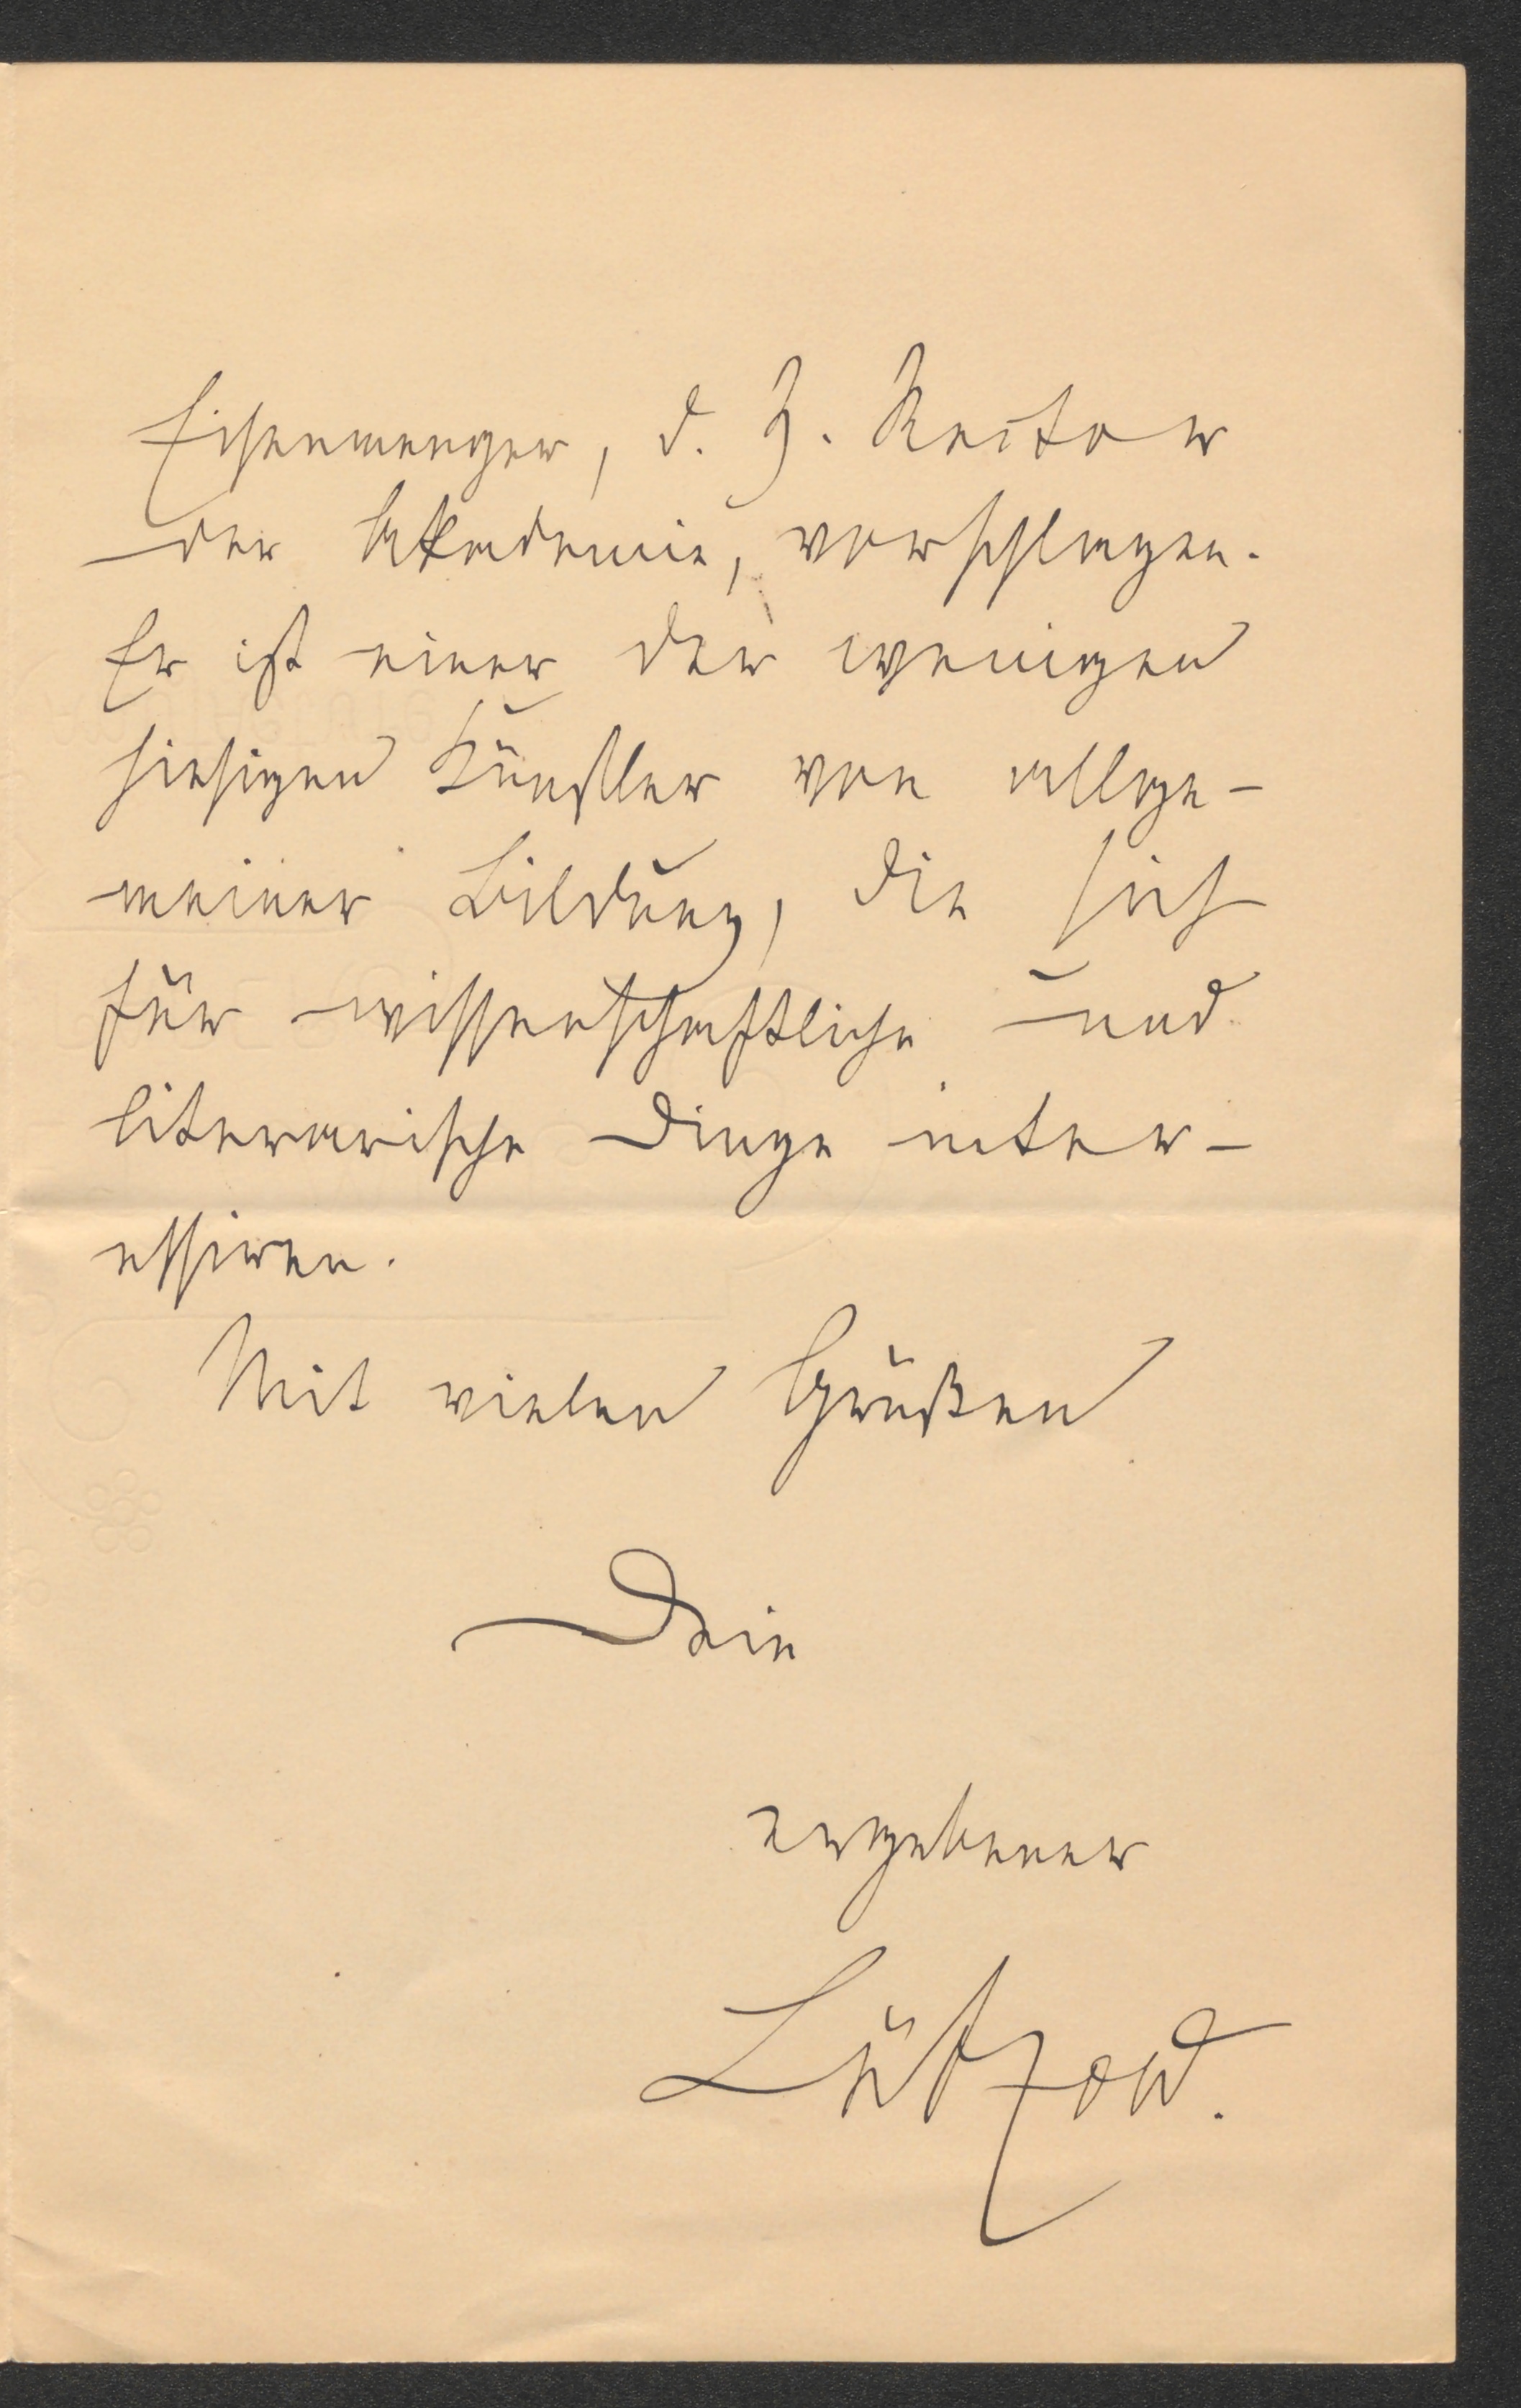 Eisenmenger, d. Z. Rector
der Akademie, vorschlagen.
Er ist einer der wenigen
hiesigen Künstler von allge-
meiner Bildung, die sich
für wissenschaftliche und
literarische Dinge inter-
essiren.
Mit vielen Grüßen
Dein
ergebener
Lützow.